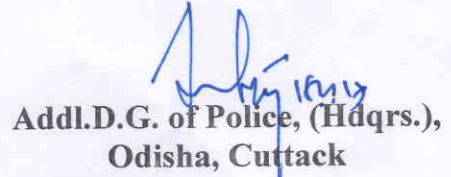 Addl.D.G. of Police, (Hdqrs.),
Odisha, Cuttack